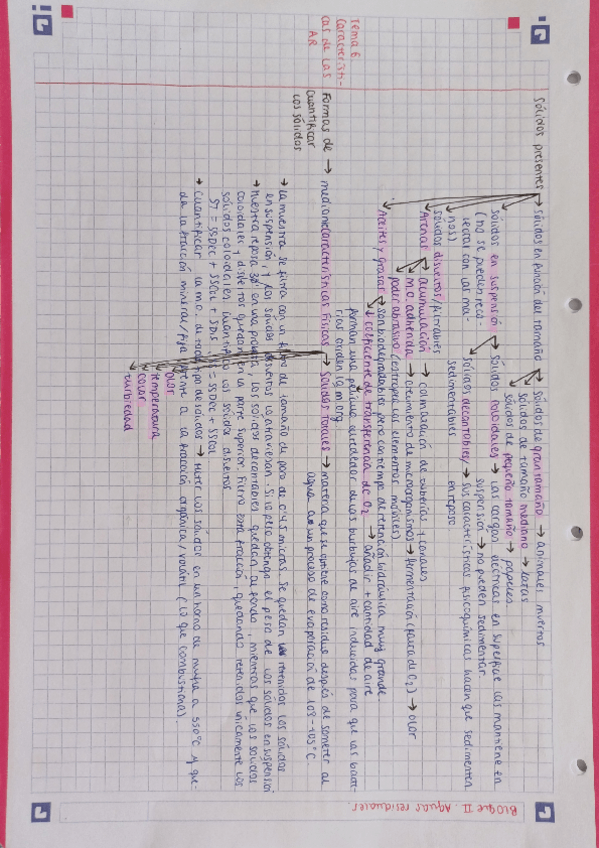 BLOQUE II. Aguas residuales.
Tema 6
Característi-
cas de las
A.R
Sólidos presentes → Sólidos en función del tamaño → sólidos de gran tamaño → animales muertos
sólidos de tamaño mediano → latas
sólidos de pequeño tamaño → papeles
sólidos en suspensión → sólidos coloidales → Las cargas eléctricas en superficie las mantiene en
(no se pueden
suspensión → no pueden sedimentar.
sólidos decantables/ → sus características fisicoquímicas hacen que sedimenten
sedimentables
en reposo
sólidos disueltos/filtrables
Arenas → acumulación → colmatación de tuberías y canales
m.o. adherida → crecimiento de microorganismos → fermentación (falta de O2) → olor
poder abrasivo (estropea los elementos móviles)
Aceites y grasas → son biodegradables pero con tiempo de retención hidráulica muy grande
↓ coeficiente de transferencia de O2 → añadir + cantidad de aire
forman una película alrededor de las burbujas de aire inducidas para que las bacte-
rias oxiden la m.org.
Formas de → mediante características físicas → Sólidos totales → materia que se obtiene como residuo después de someter al
cuantificar
agua a un proceso de evaporación de 103-105°C.
los sólidos
→ La muestra se filtra con un filtro de tamaño de poro de 0'45 micras. Se quedan retenidos los sólidos
en suspensión y los sólidos disueltos lo atraviesan. Si lo peso obtengo el peso de los sólidos en suspensión
→ Muestra reposa 30' en una probeta. Los sólidos decantables quedan al fondo, mientras que los sólidos
coloidales y disueltos quedan en la parte superior. Filtro esta fracción, quedando retenidos únicamente los
sólidos coloidales. Cuantifico los sólidos disueltos
ST = SSDec + SSCol + SDis SS = SSDec + SSCol
→ Cuantificar la m.o. de todo tipo de sólidos → meter los sólidos en un horno de mufla a 550°C y que-
da la fracción mineral/fija frente a la fracción orgánica/volátil (lo que combustiona).
olor
temperatura
color
turbiedad